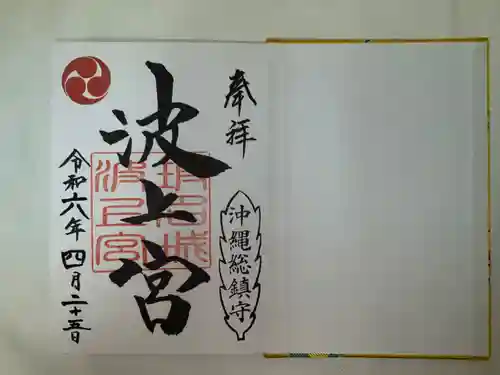 奉拝
沖縄総鎮守
波上宮
令和六年四月二十五日